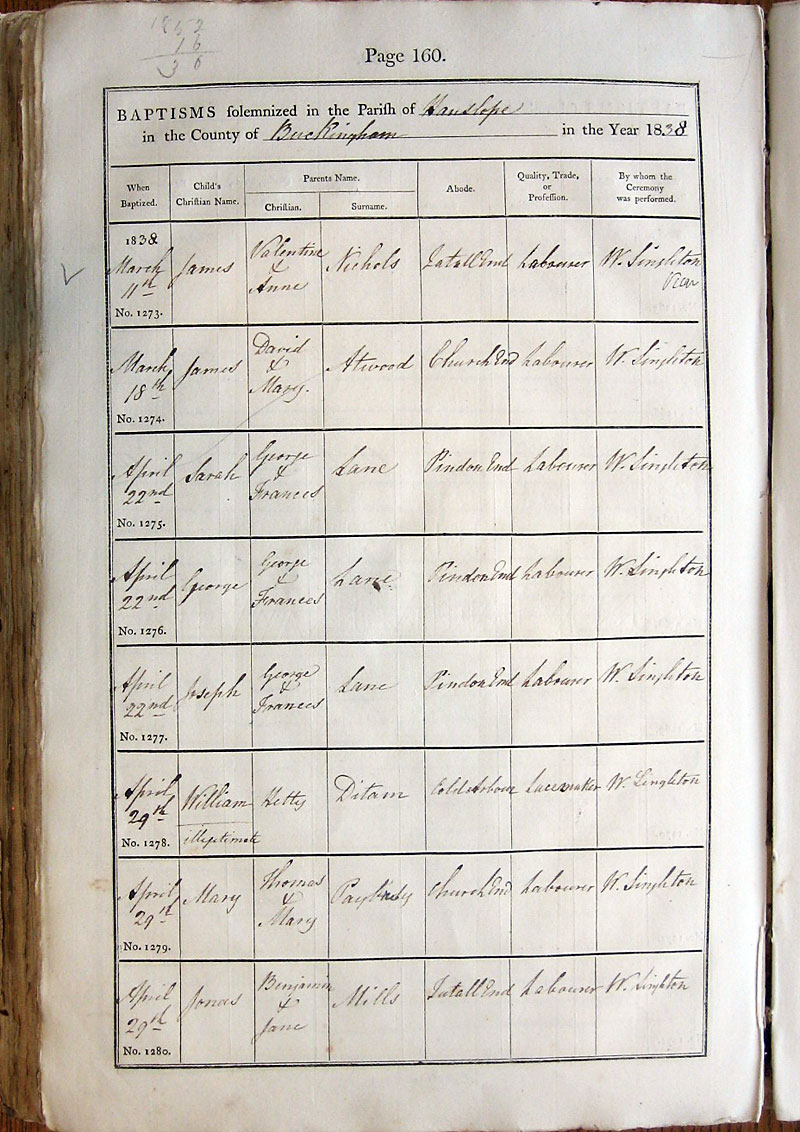 1852
16
36
Page 160.
BAPTISMS solemnized in the Parish of Hanslope
in the County of Buckingham in the Year 1838
When Baptized. Child's Christian Name. Parents Name. Christian. Surname. Abode. Quality, Trade, or Profession. By whom the Ceremony was performed.
1838 March 11th James Valentine & Anne Nichols Tatall End Labourer W. Singleton Vicar
No. 1273.
March 18th James David & Mary. Atwood Church End Labourer W. Singleton
No. 1274.
April 22nd Sarah George & Frances Lane Pindon End Labourer W. Singleton
No. 1275.
April 22nd George George & Frances Lane Pindon End Labourer W. Singleton
No. 1276.
April 22nd Joseph George & Frances Lane Pindon End Labourer W. Singleton
No. 1277.
April 29th William Hetty Ditam Cold Arbour Lacemaker W. Singleton
No. 1278. illegitimate
April 29th Mary Thomas & Mary Paybody Church End Labourer W. Singleton
No. 1279.
April 29th Jonas Benjamin & Jane Mills Tatall End Labourer W. Singleton
No. 1280.